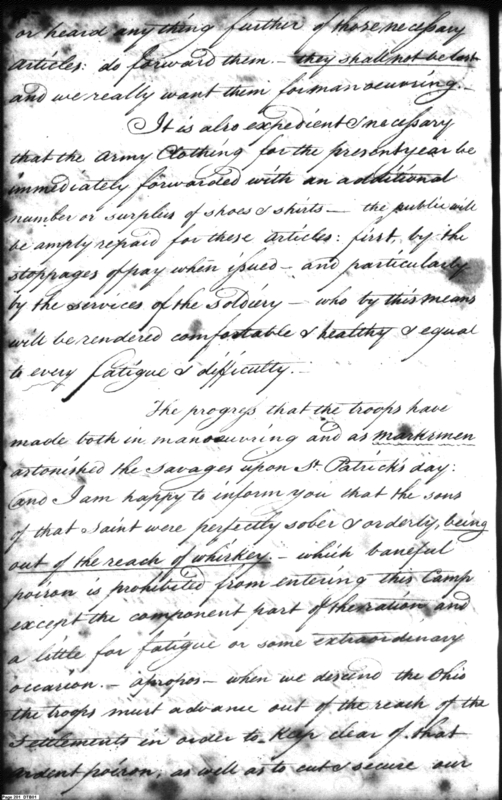 or heard any thing further of those necessary
Articles: do forward them — they shall not be lost
and we really want them for manoeuvring. —
It is also expedient & necessary
that the Army Clothing for the present year be
immediately forwarded with an additional
number or surplus of shoes & shirts — the public will
be amply repaid for these articles: first, by the
stoppages of pay when issued — and particularly
by the services of the soldiery — who by this means
will be rendered comfortable & healthy & equal
to every fatigue & difficulty. —
The progress that the troops have
made both in manoeuvring and as marksmen
astonished the Savages upon St. Patrick's day:
and I am happy to inform you that the sons
of that Saint were perfectly sober & orderly, being
out of the reach of whiskey — which baneful
poison is prohibited from entering this Camp
except the component part of the ration and
a little for fatigue or some extraordinary
occasion. — apropos — when we descend the Ohio
the troops must advance out of the reach of the
Settlements in order to keep clear of that
ardent poison, as well as to cut & secure our
Page 201 DTB01